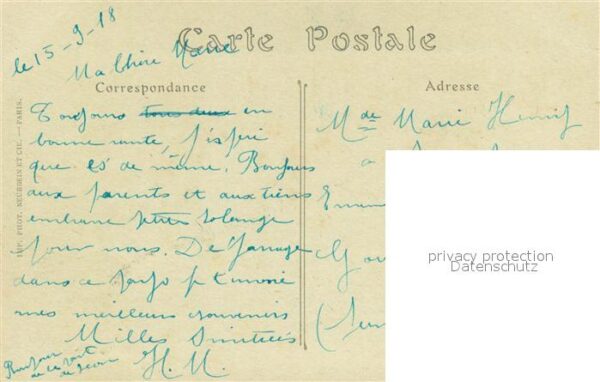 le 15-9-18
Carte Postale
Ma Chère Marie
Correspondance
Adresse
Toujours tous deux en
bonne santé, j'espère
que
de même. Bonjours
aux parents et aux tiens
embrasse petite Solange
pour nous. De passage
dans ce pays je t'envoie
mes meilleurs souvenirs
Milles Amitiés
H. M.
Bonjour
Mde Marie
a
IMP. PHOT. NEURDEIN ET CIE. — PARIS.
privacy protection
Datenschutz